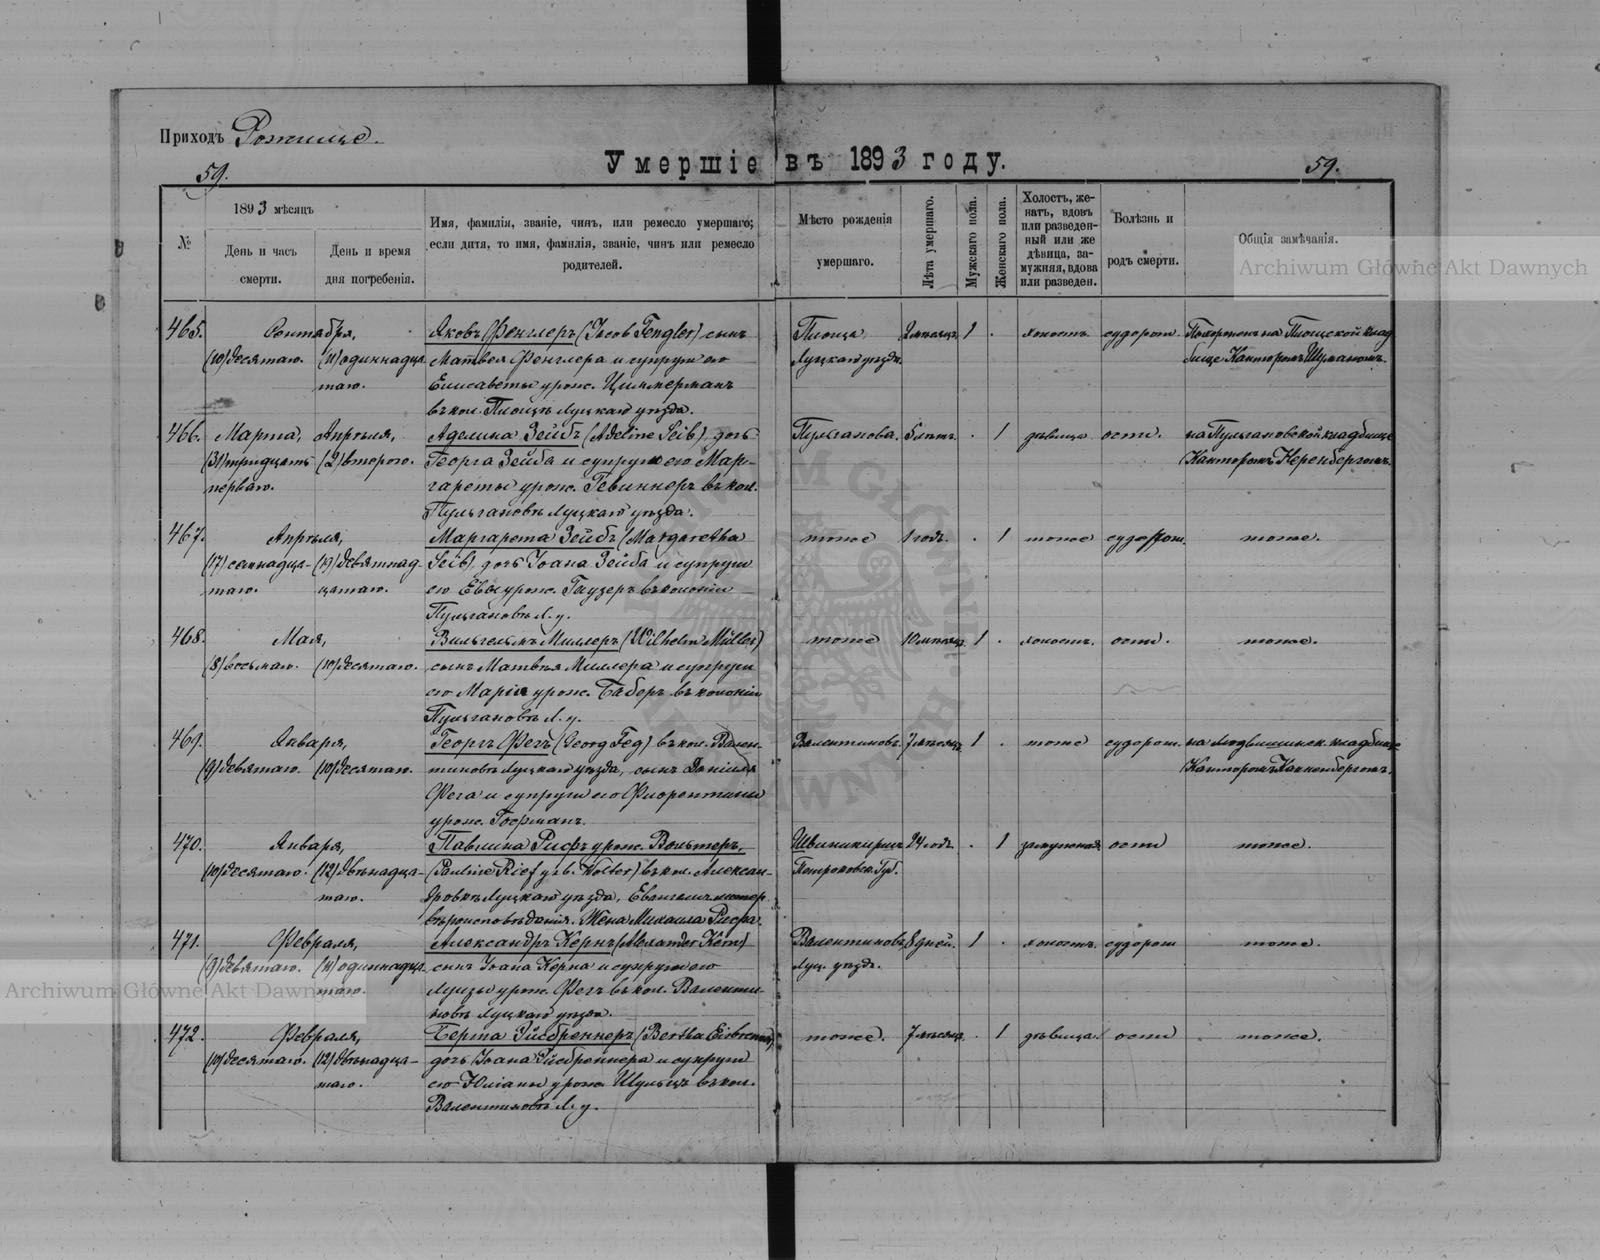 Приходъ Рожище.
Умершіе въ 1893 году.
59.
59.
№
1893 мѣсяцъ
День и часъ
смерти.
День и время
дня погребенія.
Имя, фамилія, званіе, чинъ, или ремесло умершаго;
если дитя, то имя, фамилія, званіе, чинъ или ремесло
родителей.
Мѣсто рожденія
умершаго.
Лѣта умершаго.
Мужскаго пола.
Женскаго пола.
Холостъ, же-
натъ, вдовъ
или разведен-
ный или же
дѣвица, за-
мужняя, вдова
или разведен.
Болѣзнь и
родъ смерти.
Общія замѣчанія.
Archiwum Główne Akt Dawnych
465. Сентября, Яковъ Фенглеръ (Jacob Fengler) сынъ 1 . холостъ судорог.
(10) десятаго. (11) одиннадца- Матвея Фенглера и супруги его Луцкаго уѣзда. Канторомъ
таго. Елисаветы урож. Циммерманъ
въ кол. Луцкаго уѣзда.
466. Марта, Апрѣля, Аделина Зейбъ (Adeline Seib), дочь Пульганова. 5 лѣтъ. . 1 дѣвица на Пульгановской кладбище
(31) тридцать (2) втораго. Георга Зейба и супруги его Мар- Канторомъ Керенбергомъ.
перваго. гареты урож. въ кол.
Пульгановѣ Луцкаго уѣзда.
467. Апрѣля, Маргарета Зейбъ (Margaretha тоже 1 годъ. . 1 тоже судорог. тоже.
(17) семнадца- (19) девятнад- Seib), дочь Іоана Зейба и супруги
таго. цатаго. его Евы урож. Гаузеръ въ колоніи
Пульгановѣ Л. у.
468. Мая, Вильгельмъ Миллеръ (Wilhelm Müller) тоже 10 мѣсяц. 1 . холостъ. тоже.
(8) восьмаго. (10) десятаго. сынъ Матвѣя Миллера и супруги
его Маріи урож. въ колоніи
Пульгановѣ Л. у.
469. Января, Георгъ Фегъ (Georg Feg) въ кол. Вален- Валентиновъ. 7 мѣсяц. 1 . тоже судорог. кладбище
(9) девятаго. (10) десятаго. тиновѣ Луцкаго уѣзда, сынъ Даніила Канторомъ
Фега и супруги его Флорентины
урож. Гофманъ.
470. Января, Павлина Рифъ урож. Вольтеръ, 24 годъ. . 1 замужная тоже.
(10) десятаго. (12) двѣнадца- (Pauline Rief geb. Wolter) въ кол. Алексан- Петроковск. Губ.
таго. дровкѣ Луцкаго уѣзда, Евангелич. лютер.
вѣроисповѣданія. Жена Михаила Рифа.
471. Февраля, Александръ Кернъ (Alexander Kern) Валентиновъ 8 дней. 1 . холостъ. судорог. тоже.
(9) девятаго. (11) одиннадца- сынъ Іоана Керна и супруги его Луц. уѣзда.
таго. Луизы урож. Фегъ въ кол. Валенти-
новѣ Луцкаго уѣзда.
Archiwum Główne Akt Dawnych
472. Февраля, Берта Эйсбреннеръ (Bertha Eisbrenner) тоже. 7 мѣсяц. . 1 дѣвица. тоже.
(10) десятаго. (12) двѣнадца- дочь Іоана Эйсбреннера и супруги
таго. его Юліаны урож. Шульцъ въ кол.
Валентиновѣ Л. у.